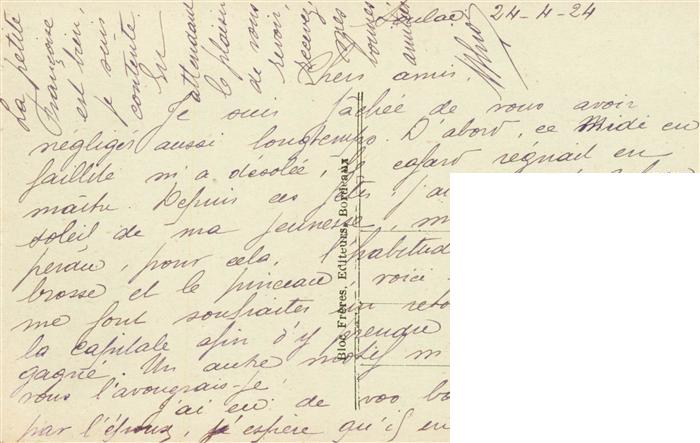 Soulac 24-4-24
Chers amis.
Je suis fâchée de vous avoir
négligés aussi longtemps. D'abord, ce Midi en
faillite m'a désolée, le cafard régnait en
maître. Depuis ces fêtes, j'ai
soleil de ma jeunesse, m
perdu, pour cela, l'habitud
brosse et le pinceau, voici
me font souhaiter un reto
la capitale afin d'y
gagné. Un autre motif m
vous l'avouerais-je
j'ai eu de vos bo
par l'époux, j'espère qu'il en
La petite
Françoise
est bien,
je suis
contente.
En
attendant
le plaisir
de vous
revoir,
recevez
mes
bonnes
amitiés
Bloc Frères, Editeurs, Bordeaux